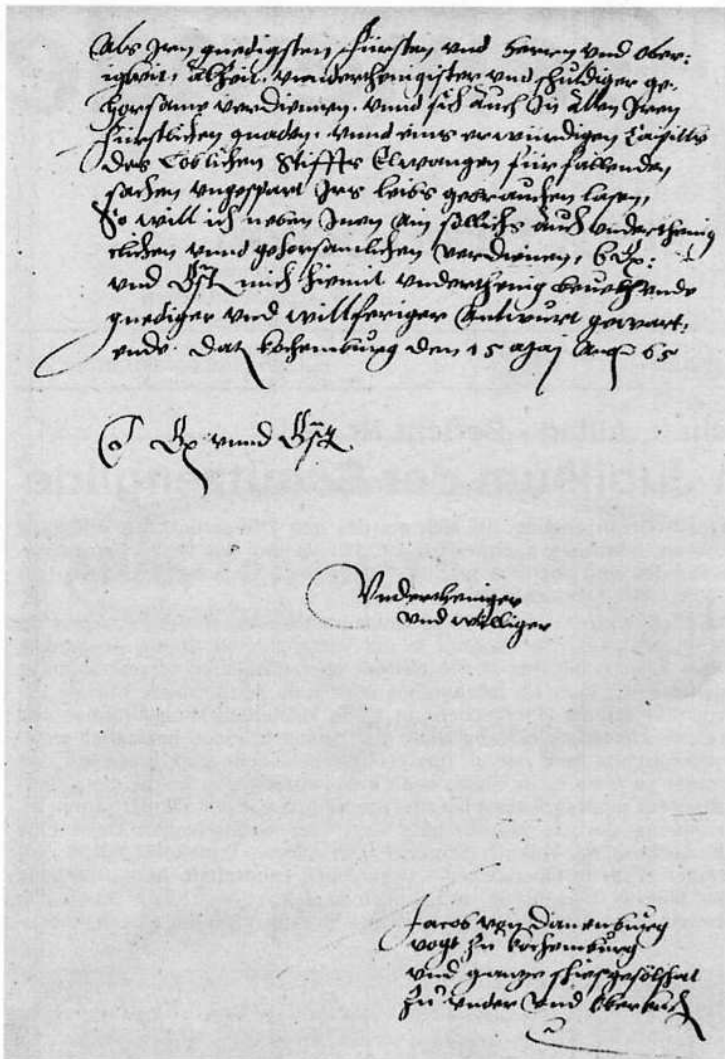 Als Iren gnedigsten Fürsten vnd herren vnd Ober:
igkeit, alzeit vnnderthenigister vnd schuldiger ge:
horsame verdiennen, vnnd sich auch In allen Iren
Fürstlichen gnaden, vnnd eins erwürdigen Capittls
des Loblichen Stiffts Elwangen fürfallenden
sachen vngespart Irs leibs gebrauchen lasen,
So will ich neben Inen ain sollichs auch vnderthenig
clichen vnnd gehorsamlichen verdienen, E
vnd mich hiemit vnderthenig beuelhende
gnediger vnd willferiger Antwurt gewart,
ende. Dat Kochemburg den 15 Maij Anno 65
E vnnd
Vndertheniger
vnd williger
Jacob von Danenburg
vogt zu Kochemburg
vnd gantze schiesgesölschat
zu vnder vnd Oberkoch